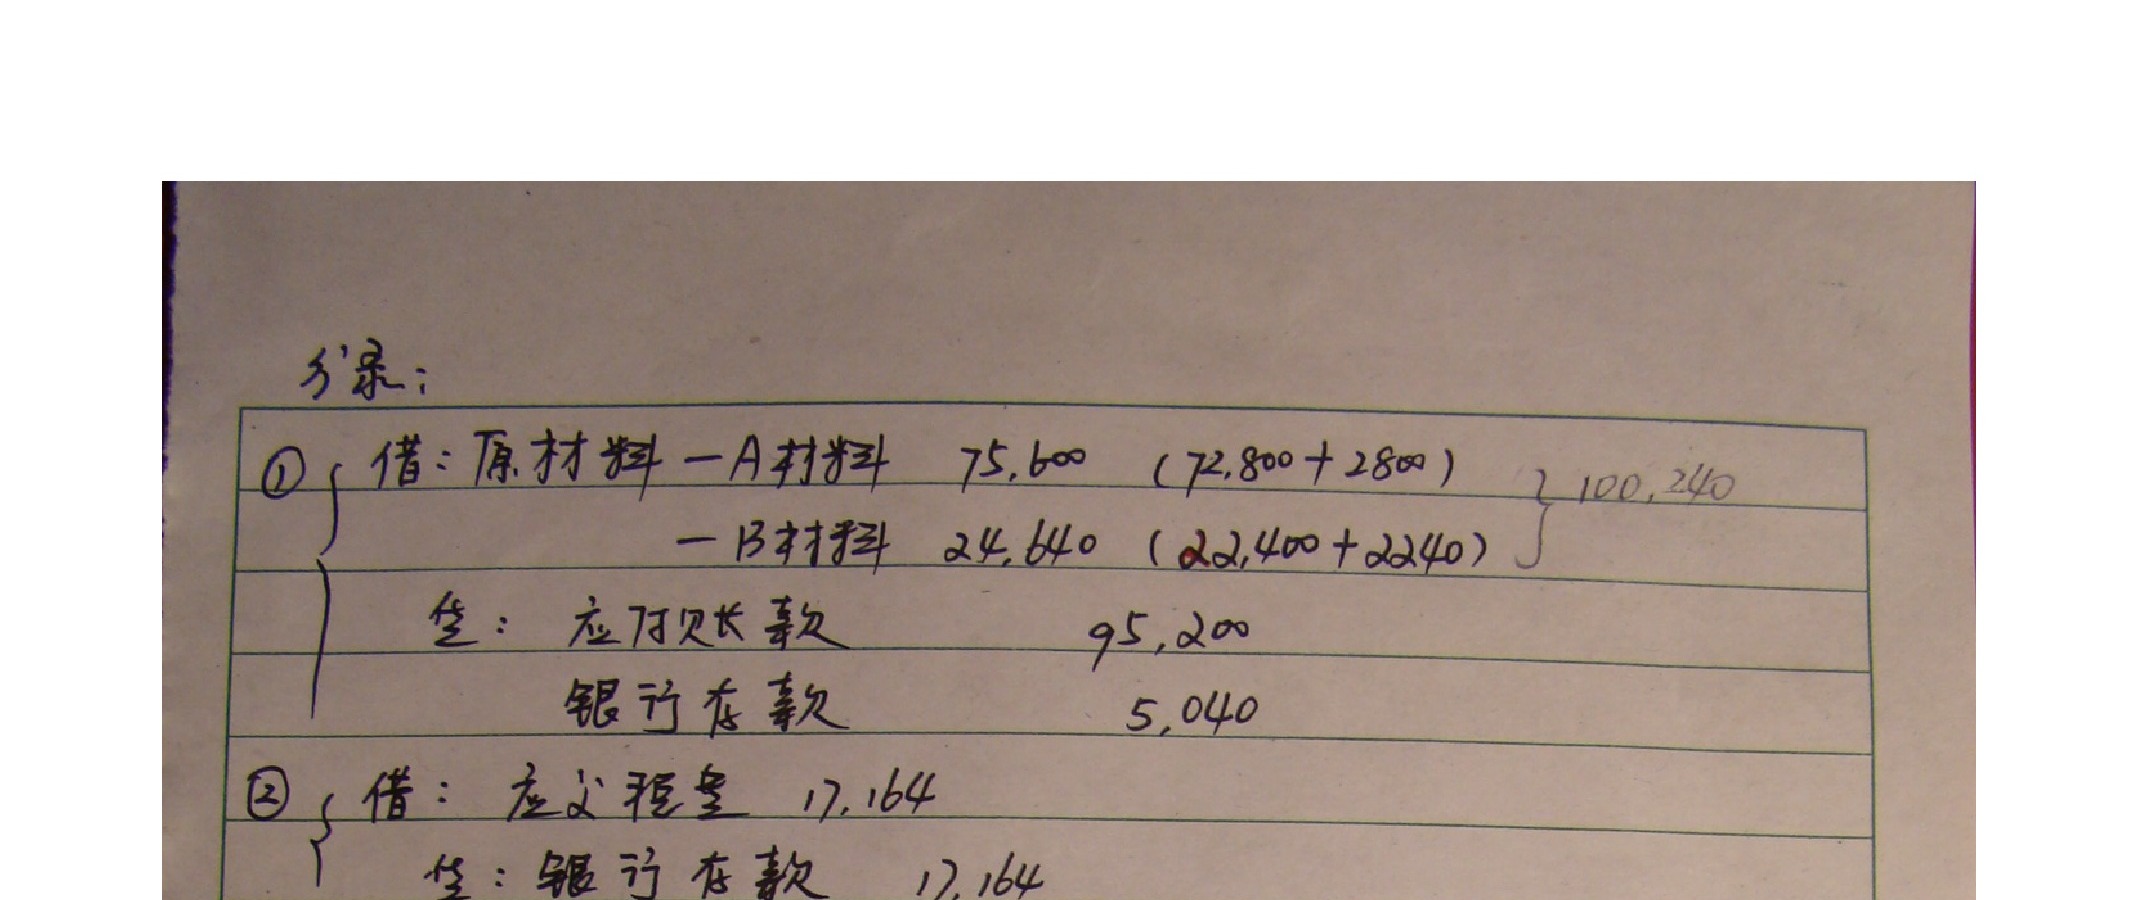 分录:
① 借: 原材料 — A材料 75,600 (72,800 + 2800)
— B材料 24,640 (22,400 + 2240) } 100,240
贷: 应付账款 95,200
银行存款 5,040
② 借: 应交税费 17,164
贷: 银行存款 17,164